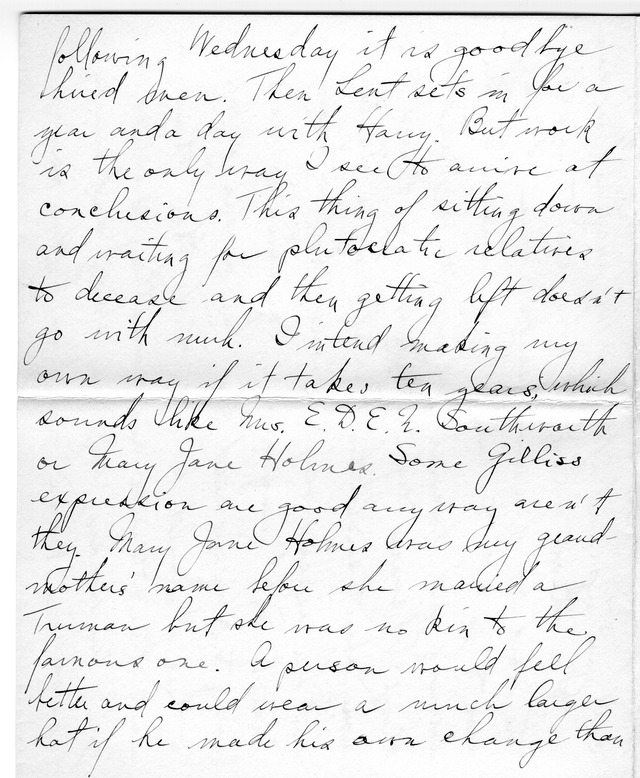 following Wednesday it is goodbye
hired men. Then Lent sets in for a
year and a day with Harry. But work
is the only way I see to arrive at
conclusions. This thing of sitting down
and waiting for plutocratic relatives
to decease and then getting left doesn't
go with muh. I intend making my
own way if it takes ten years, which
sounds like Mrs. E. D. E. N. Southworth
or Mary Jane Holmes. Some Gilliss
expression are good anyway aren't
they. Mary Jane Holmes was my grand-
mothers' name before she married a
Truman but she was no kin to the
famous one. A person would feel
better and could wear a much larger
hat if he made his own change than